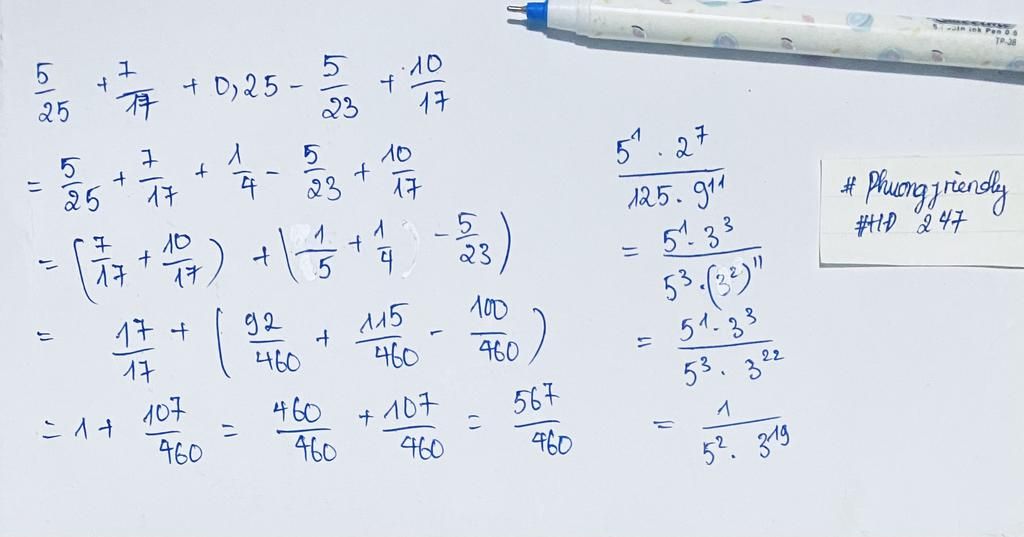 5/25 + 7/17 + 0,25 - 5/23 + 10/17
= 5/25 + 7/17 + 1/4 - 5/23 + 10/17
= (7/17 + 10/17) + (1/5 + 1/4 - 5/23)
= 17/17 + (92/460 + 115/460 - 100/460)
= 1 + 107/460 = 460/460 + 107/460 = 567/460
5^1 . 2^7 / 125 . 9^11
= 5^1 . 3^3 / 5^3 . (3^2)^11
= 5^1 . 3^3 / 5^3 . 3^22
= 1 / 5^2 . 3^19
# Phuongfriendly
#HD 247
ink Pen 0.6
TP-38